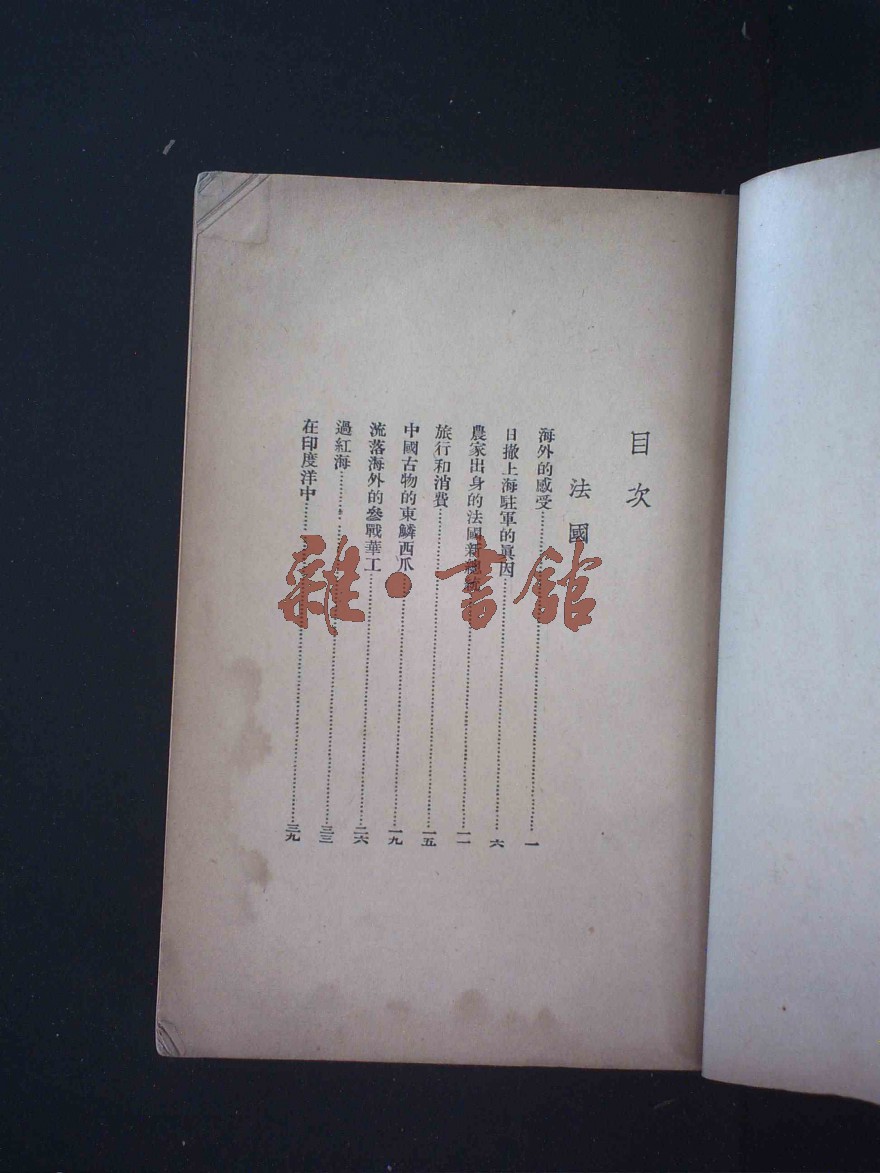 目次
法國
海外的感受……一
日撤上海駐軍的眞因……六
農家出身的法國新總統……一一
旅行和消費……一五
中國古物的東鱗西爪……一九
流落海外的參戰華工……二六
過紅海……三三
在印度洋中……三九
雜·書館